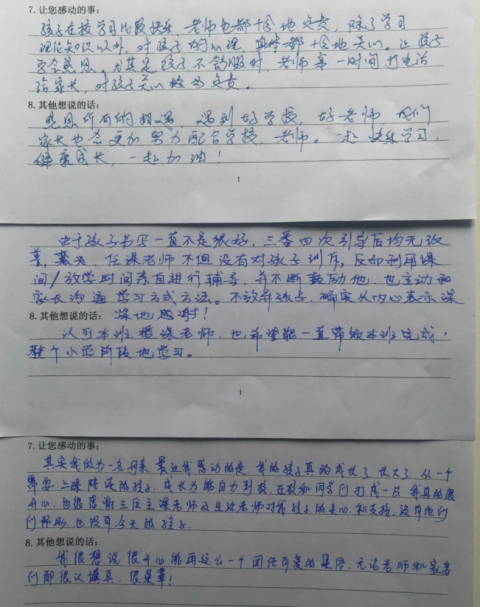 7.让您感动的事:
孩子在校学习比较快乐,老师也都十分地负责,除了学习
理论知识以外,对孩子的心理,身体都十分地关心。让孩子
学会感恩,尤其是孩子不舒服时,老师第一时间打电话
给家长,对孩子关心较为负责。
8.其他想说的话:
感恩所有的相遇,遇到好学校,好老师,我们
家长也会更加努力配合学校,老师。一起快乐学习,
健康成长,一起加油!
1
由于孩子书写一直不是很好,三番四次引导后均无改
善,任课老师不但没有对孩子训斥,反而利用课
间/放学时间亲自进行辅导,并不断鼓励他,也主动和
家长沟通学习方式方法。不放弃孩子,确实从内心表示深
8.其他想说的话:深地感谢!
认可本班授课老师,也希望能一直带领本班完成
整个小学阶段地学习。
1
7.让您感动的事:
其实我作为一名母亲,最近我感动的是,我的孩子真的成长了,长大了,从一个
需要上课陪读的孩子,成长为能自力到校,在校和同学们打成一片,我真的很
开心,也很感谢三位主课老师及生活老师对我孩子的关心和支持,没有他们
们帮助,也没有今天的孩子。
8.其他想说的话:
我很想说很开心能再这么一个团结有爱的集体,无论老师和家长
们都很认真,很负责!